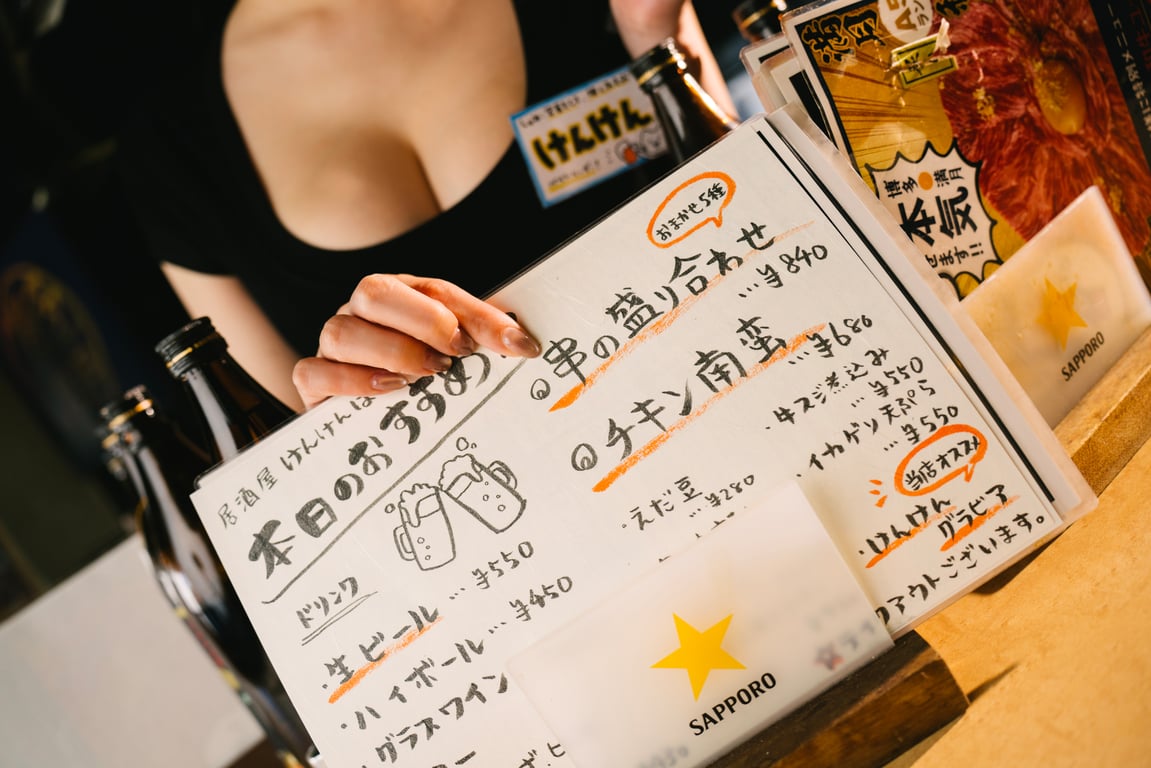 けんけん
居酒屋 けんけんは
本日のおすすめ
ドリンク
・生ビール … ¥550
・ハイボール … ¥450
・グラスワイン
おまかせ5種
◎串の盛り合わせ
… ¥840
◎チキン南蛮
… ¥680
・牛スジ煮込み
… ¥550
・イカゲソ天ぷら
… ¥550
・えだ豆
… ¥280
当店オススメ
・けんけん
グラビア
アウトございます。
SAPPORO
博多 満月
本気
せます!!
SAPPORO